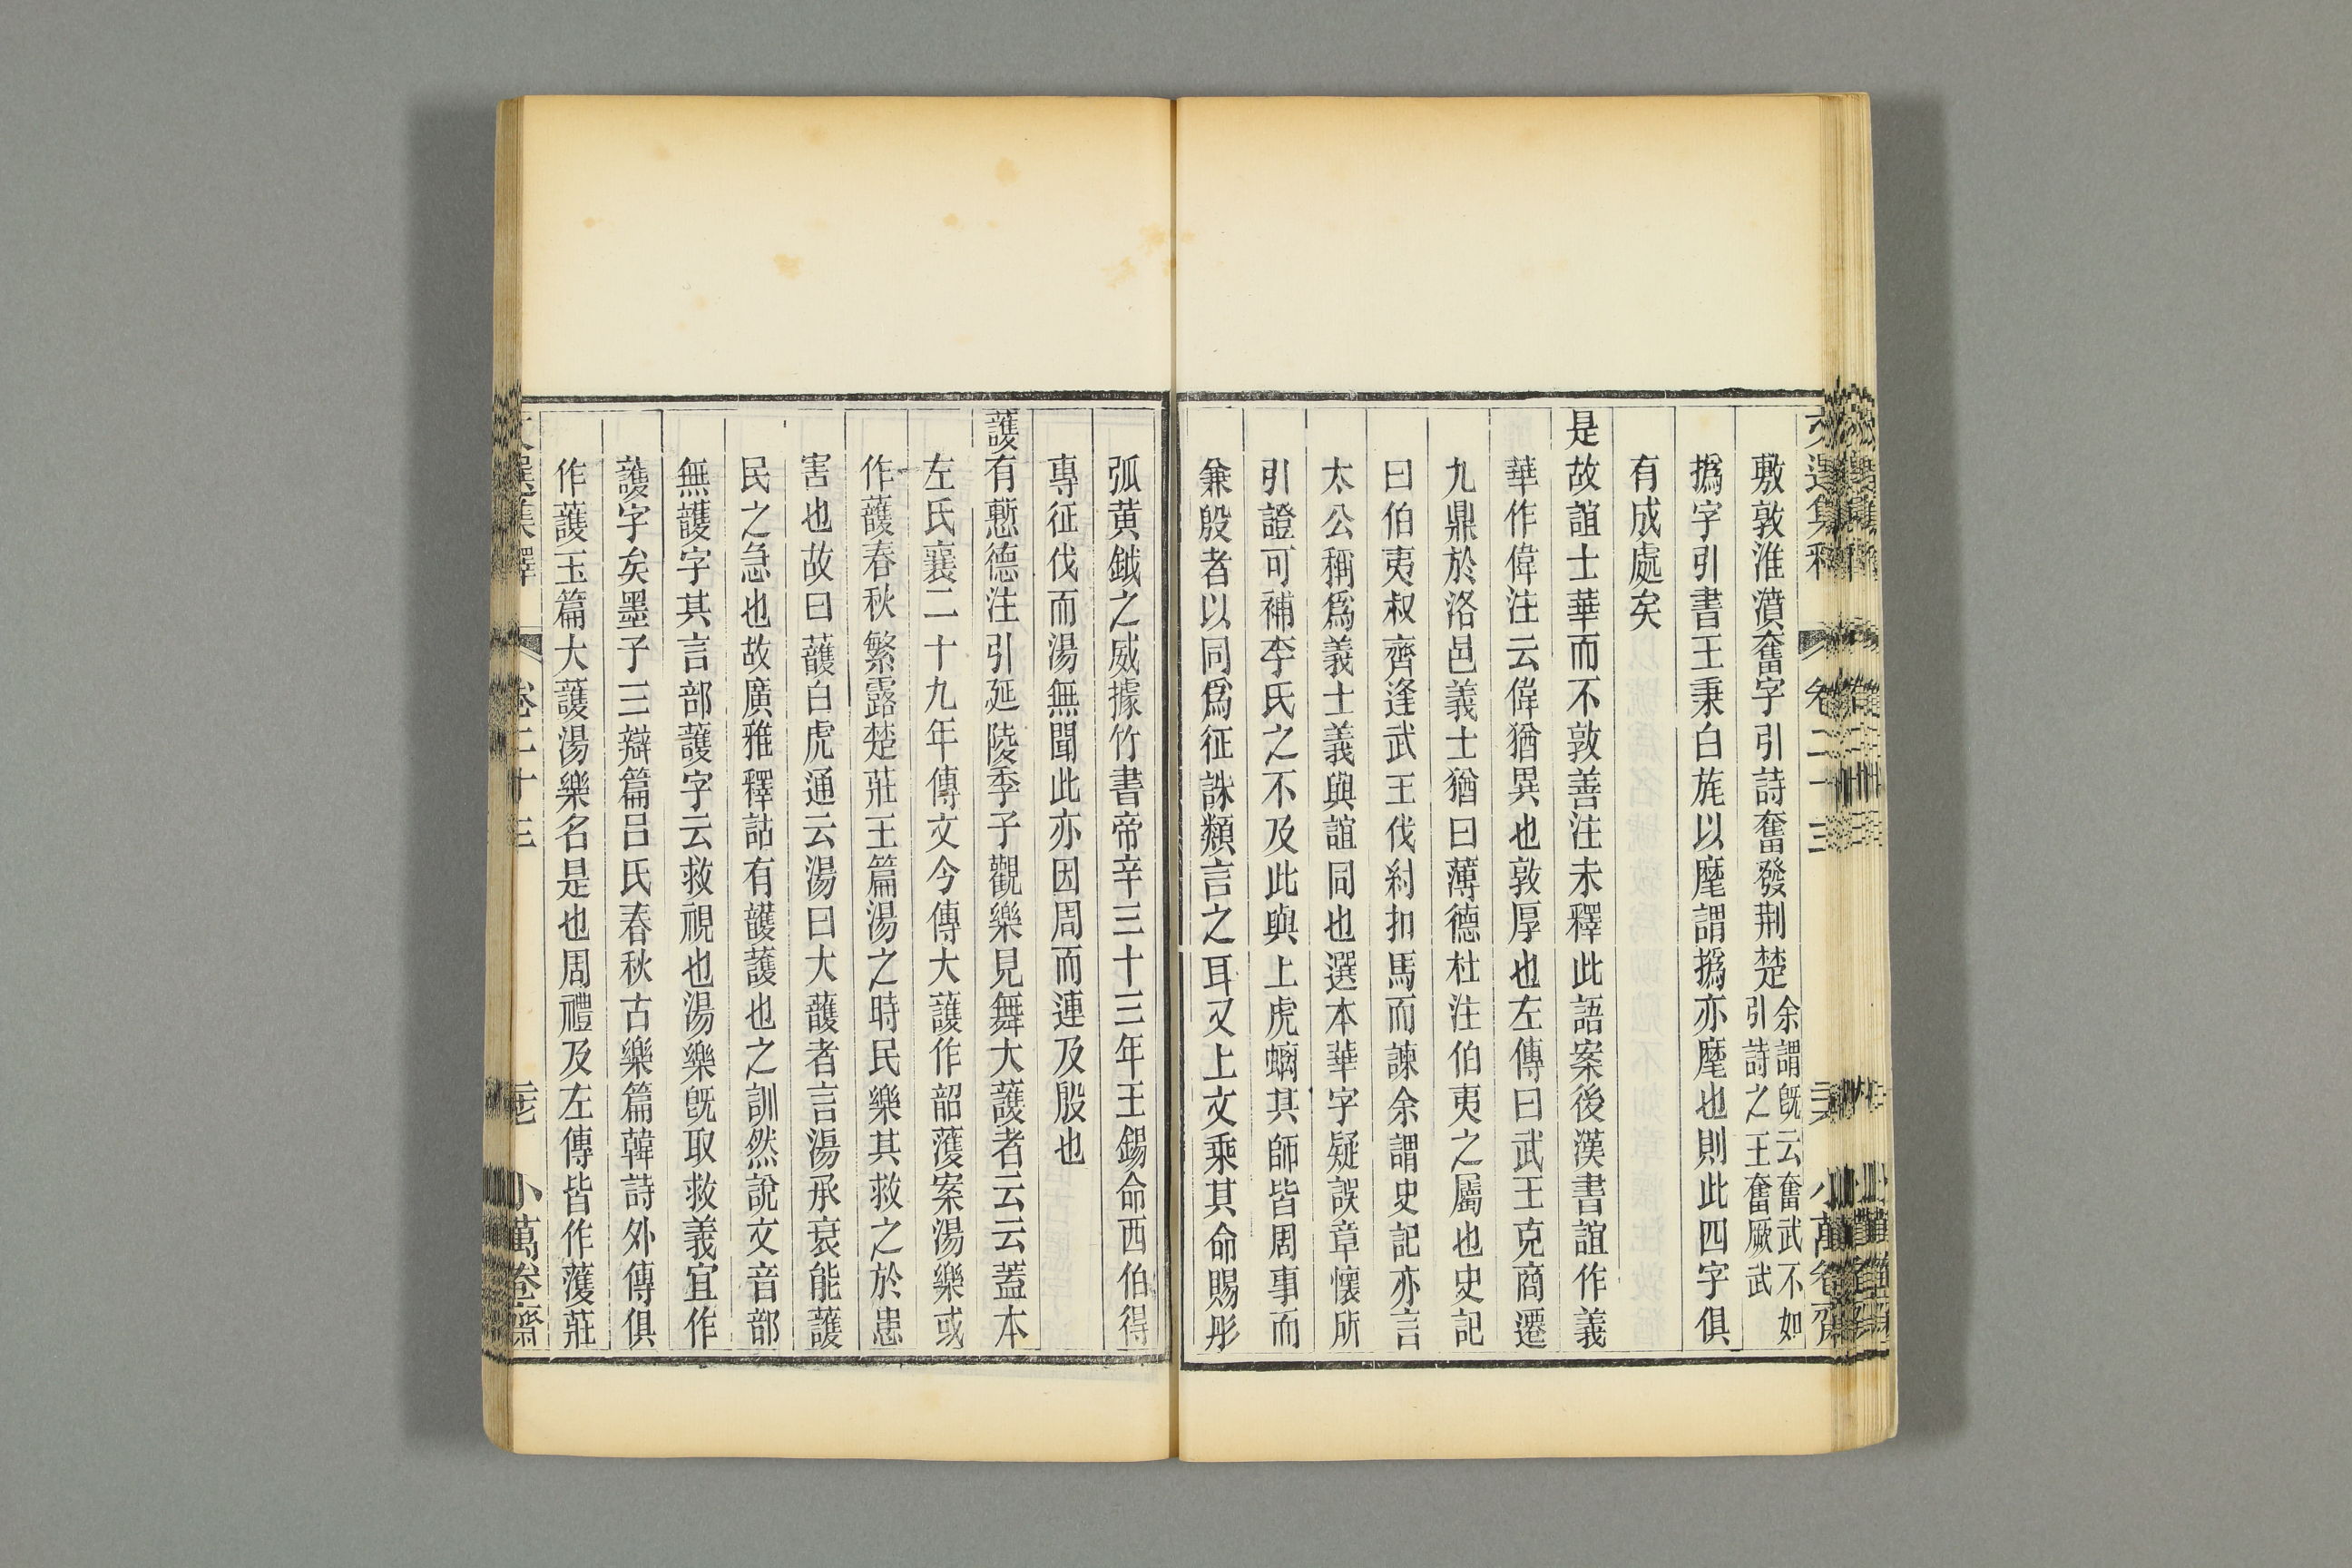 敷敦淮濆奮字引詩奮發荆楚余謂旣云奮武不如引詩之王奮厥武
撝字引書王秉白旄以麾謂撝亦麾也則此四字俱
有成處矣
是故誼士華而不敦善注未釋此語案後漢書誼作義
華作偉注云偉猶異也敦厚也左傳曰武王克商遷
九鼎於洛邑義士猶曰薄德杜注伯夷之屬也史記
曰伯夷叔齊逢武王伐紂扣馬而諫余謂史記亦言
太公稱爲義士義與誼同也選本華字疑誤章懷所
引證可補李氏之不及此與上虎螭其師皆周事而
兼殷者以同爲征誅類言之耳又上文乘其命賜彤
弧黄鉞之威據竹書帝辛三十三年王錫命西伯得
專征伐而湯無聞此亦因周而連及殷也
頀有慙德注引延陵季子觀樂見舞大頀者云云蓋本
左氏襄二十九年傳文今傳大頀作韶濩案湯樂或
作頀春秋繁露楚莊王篇湯之時民樂其救之於患
害也故曰頀白虎通云湯曰大頀者言湯承衰能護
民之急也故廣雅釋詁有護頀也之訓然說文音部
無頀字其言部護字云救視也湯樂旣取救義宜作
護字矣墨子三辯篇呂氏春秋古樂篇韓詩外傳俱
作護玉篇大護湯樂名是也周禮及左傳皆作濩莊
文選集釋
卷二十三
小萬卷齋